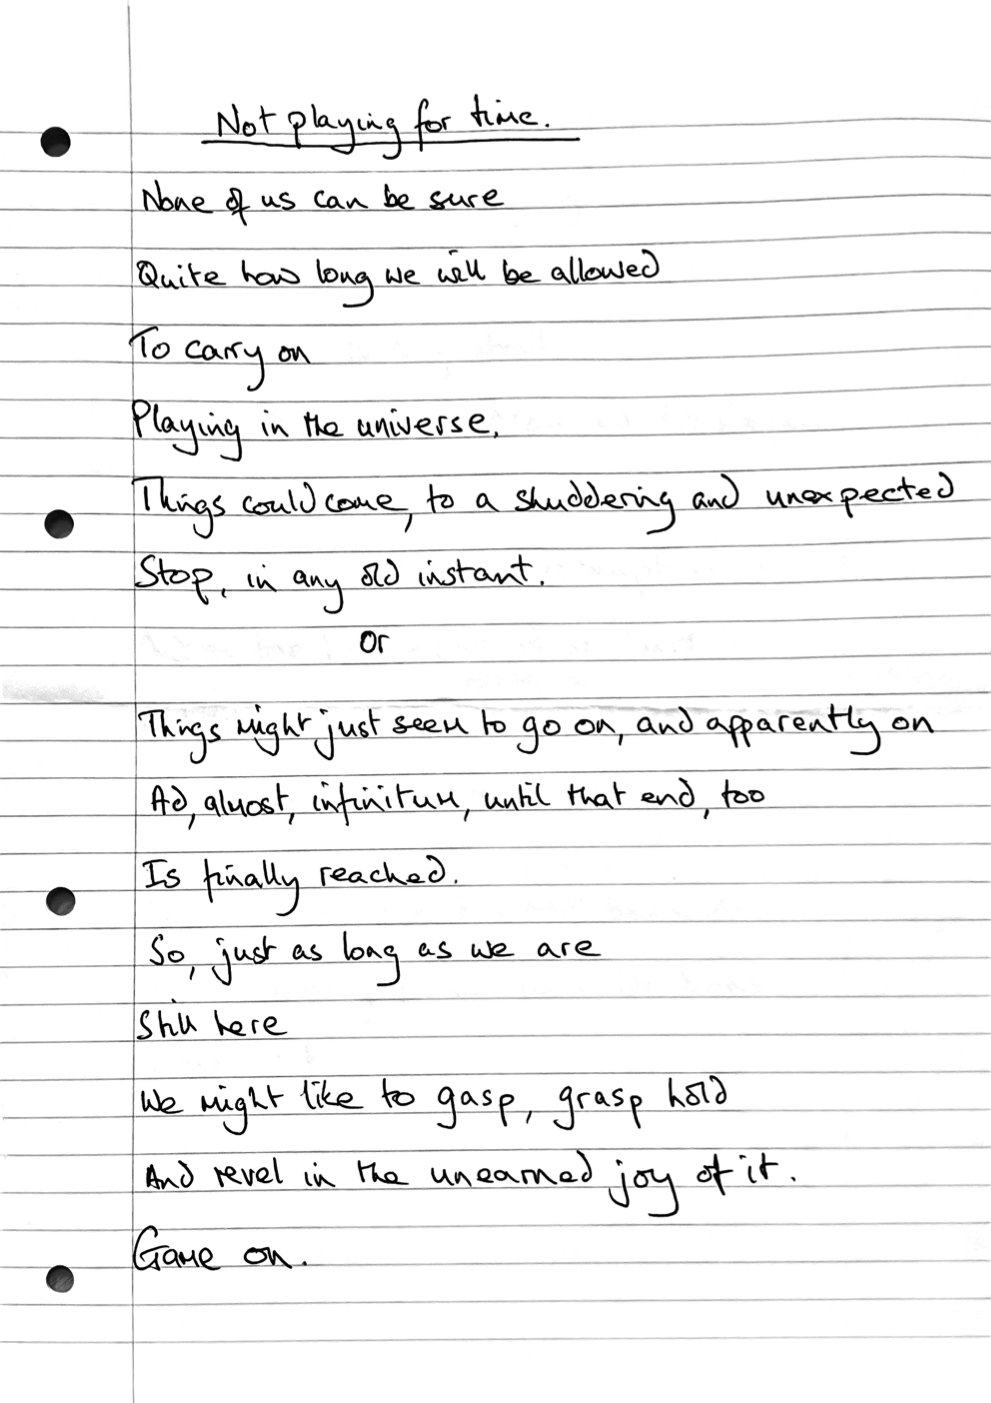 Not playing for time.
None of us can be sure
Quite how long we will be allowed
To carry on
Playing in the universe.
Things could come, to a shuddering and unexpected
Stop, in any old instant.
Or
Things might just seem to go on, and apparently on
Ad, almost, infinitum, until that end, too
Is finally reached.
So, just as long as we are
Still here
We might like to gasp, grasp hold
And revel in the unearned joy of it.
Game on.